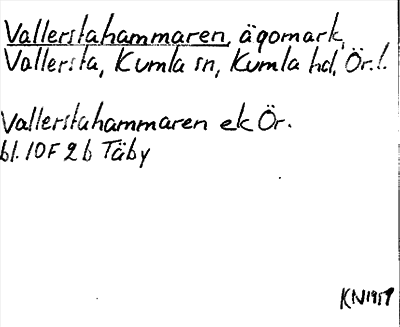 Vallerstahammaren, ägomark,
Vallersta, Kumla sn, Kumla hd, Ör.l.
Vallerstahammaren ek Ör.
bl. 10F 2b Täby
KN1957